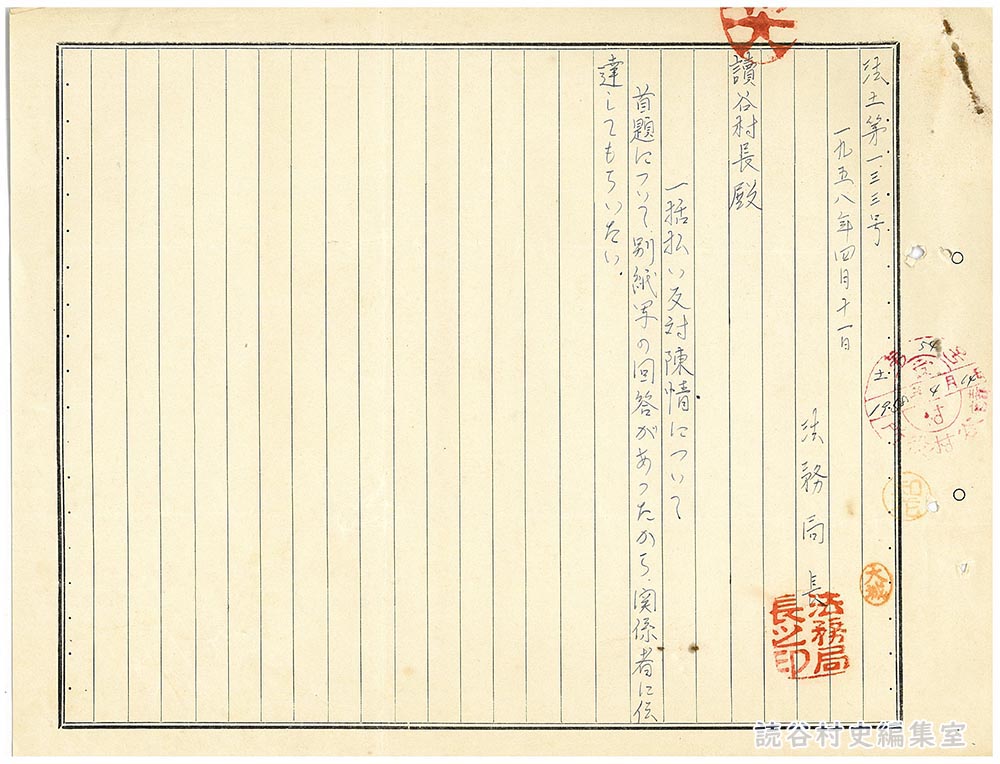 法土第一三三号
一九五八年四月十一日
法務局長
法務局長之印
讀谷村長殿
一括払い反対陳情について
首題について別紙写の回答があったから、関係者に伝
達してもらいたい.
読谷村史編集室